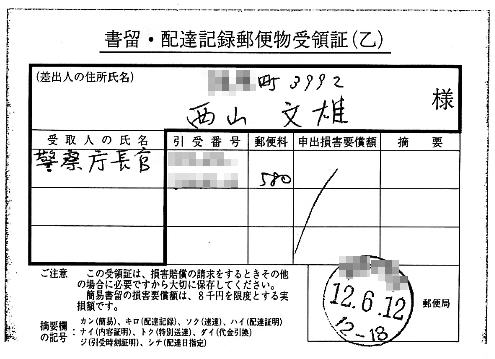 書留・配達記録郵便物受領証(乙)
(差出人の住所氏名)
町3992
西山 文雄 様
受取人の氏名 引受番号 郵便料 申出損害要償額 摘要
警察庁長官
580
ご注意 この受領証は、損害賠償の請求をするときその他
の場合に必要ですから大切に保存してください。
簡易書留の損害要償額は、8千円を限度とする実
損額です。
摘要欄
の記号
カン(簡易)、キロ(配達記録)、ソク(速達)、ハイ(配達証明)
ナイ(内容証明)、トク(特別送達)、ダイ(代金引換)
ジ(引受時刻証明)、シチ(配達日指定)
12.6.12
12-18
郵便局